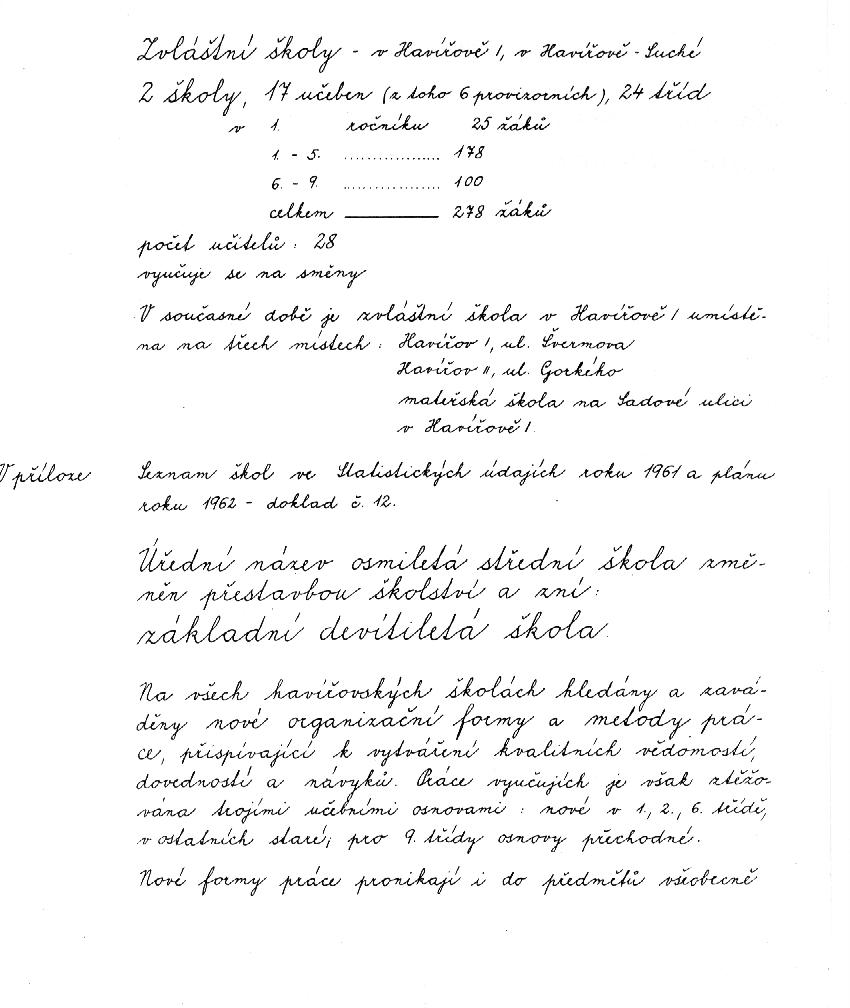 Zvláštní školy - v Havířově I, v Havířově - Suché
2 školy, 17 učeben (z toho 6 provizorních), 24 tříd
v 1. ročníku 25 žáků
1. - 5. .................. 178
6. - 9. .................. 100
celkem ________ 278 žáků
počet učitelů : 28
vyučuje se na směny
V současné době je zvláštní škola v Havířově I umístě-
na na třech místech : Havířov I, ul. Švermova
Havířov II, ul. Gorkého
mateřská škola na Sadové ulici
v Havířově I.
V příloze Seznam škol ve Statistických údajích roku 1961 a plánu
roku 1962 - doklad č. 12.
Úřední název osmiletá střední škola změ-
něn přestavbou školství a zní :
základní devítiletá škola.
Na všech havířovských školách hledány a zavá-
děny nové organizační formy a metody prá-
ce, přispívající k vytváření kvalitních vědomostí,
dovedností a návyků. Práce vyučujících je však ztěžo-
vána trojími učebními osnovami : nové v 1., 2., 6. třídě,
v ostatních staré; pro 9. třídy osnovy přechodné.
Nové formy práce pronikají i do předmětů všeobecně